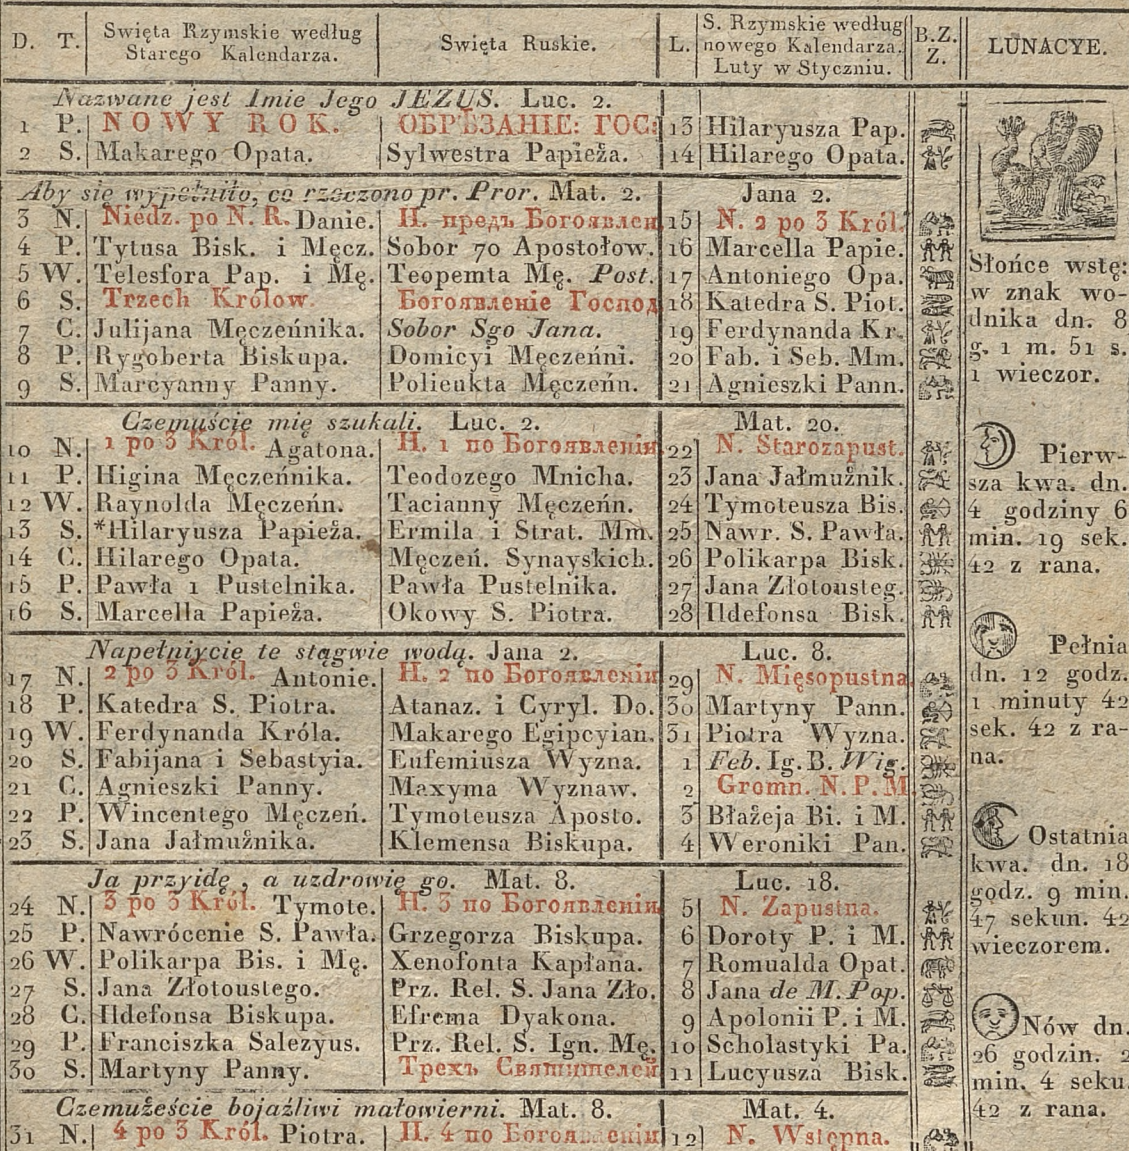 D. T. Swięta Rzymskie według Starego Kalendarza. Swięta Ruskie. L. S. Rzymskie według nowego Kalendarza. Luty w Styczniu. B.Z. Z. LUNACYE.
Nazwane jest Imie Jego JEZUS. Luc. 2.
1 P. NOWY ROK. ОБРѢЗАНІЕ: ГОС: 13 Hilaryusza Pap.
2 S. Makarego Opata. Sylwestra Papieża. 14 Hilarego Opata.
Aby się wypełniło, co rzeczono pr. Pror. Mat. 2. Jana 2.
3 N. Niedz. po N. R. Danie. Н. предъ Богоявлен 15 N. 2 po 3 Król.
4 P. Tytusa Bisk. i Męcz. Sobor 70 Apostołow. 16 Marcella Papie.
5 W. Telesfora Pap. i Mę. Teopemta Mę. Post. 17 Antoniego Opa.
6 S. Trzech Królow. Богоявленіе Господ 18 Katedra S. Piot.
7 C. Julijana Męczeńnika. Sobor Sgo Jana. 19 Ferdynanda Kr.
8 P. Rygoberta Biskupa. Domicyi Męczeńni. 20 Fab. i Seb. Mm.
9 S. Marcyanny Panny. Polieukta Męczeńn. 21 Agnieszki Pann.
Czemuście mię szukali. Luc. 2. Mat. 20.
10 N. 1 po 3 Król. Agatona. Н. 1 по Богоявленіи 22 N. Starozapust.
11 P. Higina Męczeńnika. Teodozego Mnicha. 23 Jana Jałmużnik.
12 W. Raynolda Męczeńn. Tacianny Męczeńn. 24 Tymoteusza Bis.
13 S. *Hilaryusza Papieża. Ermila i Strat. Mm. 25 Nawr. S. Pawła.
14 C. Hilarego Opata. Męczeń. Synayskich. 26 Polikarpa Bisk.
15 P. Pawła 1 Pustelnika. Pawła Pustelnika. 27 Jana Złotousteg.
16 S. Marcella Papieża. Okowy S. Piotra. 28 Ildefonsa Bisk.
Napełniycie te stągwie wodą. Jana 2. Luc. 8.
17 N. 2 po 3 Król. Antonie. Н. 2 по Богоявленіи 29 N. Mięsopustna
18 P. Katedra S. Piotra. Atanaz. i Cyryl. Do. 30 Martyny Pann.
19 W. Ferdynanda Króla. Makarego Egipcyian. 31 Piotra Wyzna.
20 S. Fabijana i Sebastyia. Eufemiusza Wyzna. 1 Feb. Ig. B. Wig.
21 C. Agnieszki Panny. Maxyma Wyznaw. 2 Gromn. N.P.M
22 P. Wincentego Męczeń. Tymoteusza Aposto. 3 Błażeja Bi. i M.
23 S. Jana Jałmużnika. Klemensa Biskupa. 4 Weroniki Pan.
Ja przyidę, a uzdrowię go. Mat. 8. Luc. 18.
24 N. 3 po 3 Król. Tymote. Н. 3 по Богоявленіи 5 N. Zapustna.
25 P. Nawrócenie S. Pawła. Grzegorza Biskupa. 6 Doroty P. i M.
26 W. Polikarpa Bis. i Mę. Xenofonta Kapłana. 7 Romualda Opat.
27 S. Jana Złotoustego. Prz. Rel. S. Jana Zło. 8 Jana de M. Pop.
28 C. Ildefonsa Biskupa. Efrema Dyakona. 9 Apolonii P. i M.
29 P. Franciszka Salezyus. Prz. Rel. S. Ign. Mę. 10 Scholastyki Pa.
30 S. Martyny Panny. Трехъ Святителей 11 Lucyusza Bisk.
Czemużeście bojaźliwi małowierni. Mat. 8. Mat. 4.
31 N. 4 po 3 Król. Piotra. Н. 4 по Богоявленіи 12 N. Wstępna.
Słońce wstę:
w znak wo-
dnika dn. 8
g. 1 m. 51 s.
1 wieczor.
Pierw-
sza kwa. dn.
4 godziny 6
min. 19 sek.
42 z rana.
Pełnia
dn. 12 godz.
1 minuty 42
sek. 42 z ra-
na.
Ostatnia
kwa. dn. 18
godz. 9 min.
47 sekun. 42
wieczorem.
Nów dn.
26 godzin. 2
min. 4 seku.
42 z rana.